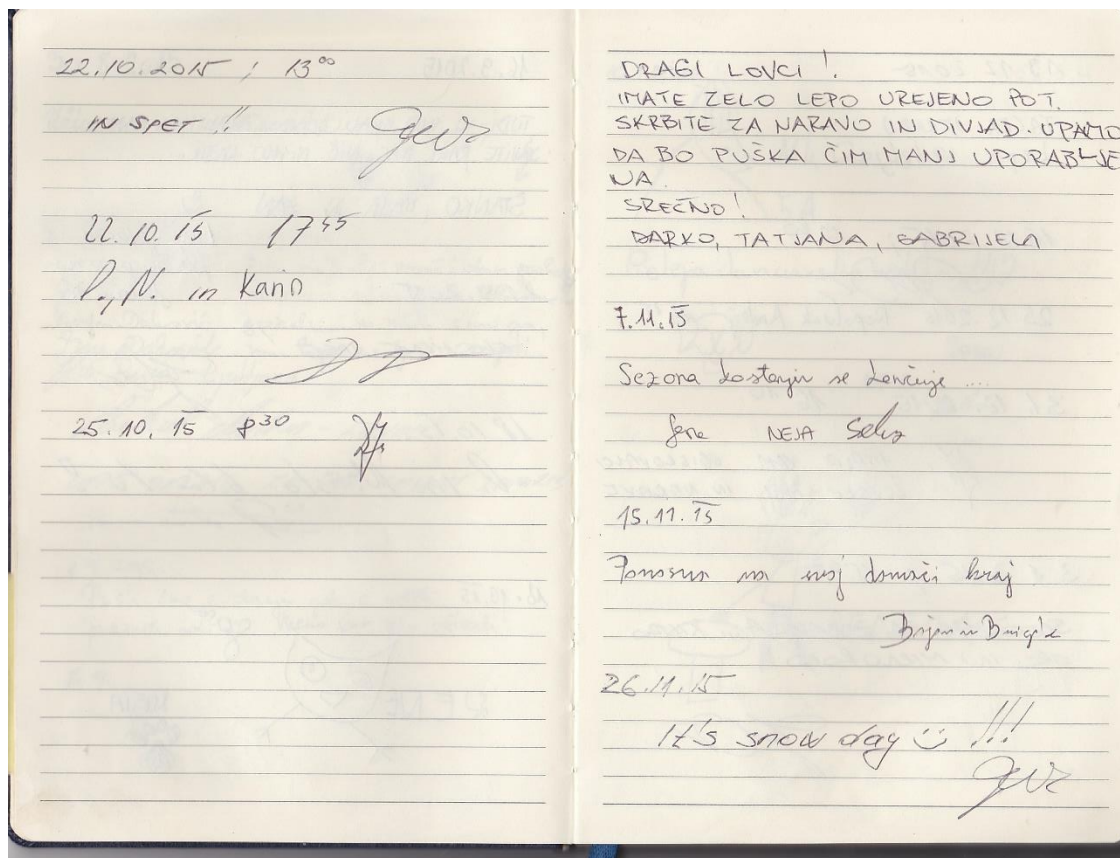 22.10.2015 ; 13⁰⁰
IN SPET !!
22. 10. 15 17⁴⁵
P., N. in Karin
25. 10. 15 8³⁰
DRAGI LOVCI !
IMATE ZELO LEPO UREJENO POT.
SKRBITE ZA NARAVO IN DIVJAD. UPAMO
DA BO PUŠKA ČIM MANJ UPORABLJE
NA.
SREČNO !
DARKO, TATJANA, GABRIJELA
7.11.15
Sezona kostanjev se končuje ....
NEJA
15.11.15
Ponosna na svoj domači kraj
26.11.15
It's snow day !!!